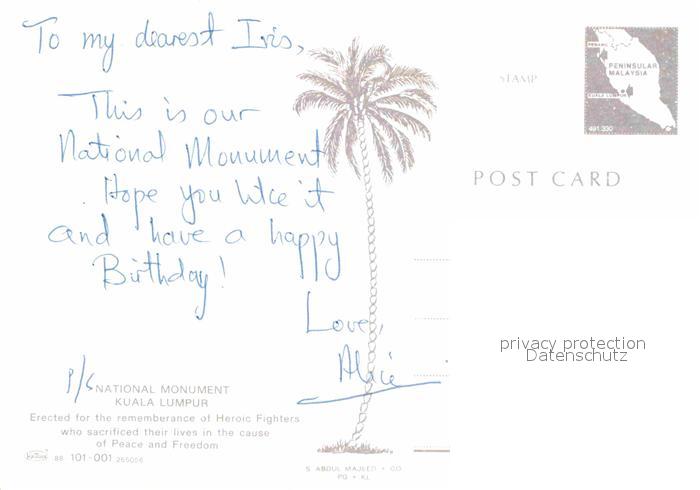 To my dearest Iris,
This is our
National Monument
. Hope you like it
and have a happy
Birthday!
Love,
P/S
NATIONAL MONUMENT
KUALA LUMPUR
Erected for the rememberance of Heroic Fighters
who sacrificed their lives in the cause
of Peace and Freedom
88 101-001 265056
S ABDUL MAJEED + CO
PG + KL
STAMP
PENANG
PENINSULAR
MALAYSIA
KUALA LUMPUR
491.330
POST CARD
privacy protection
Datenschutz